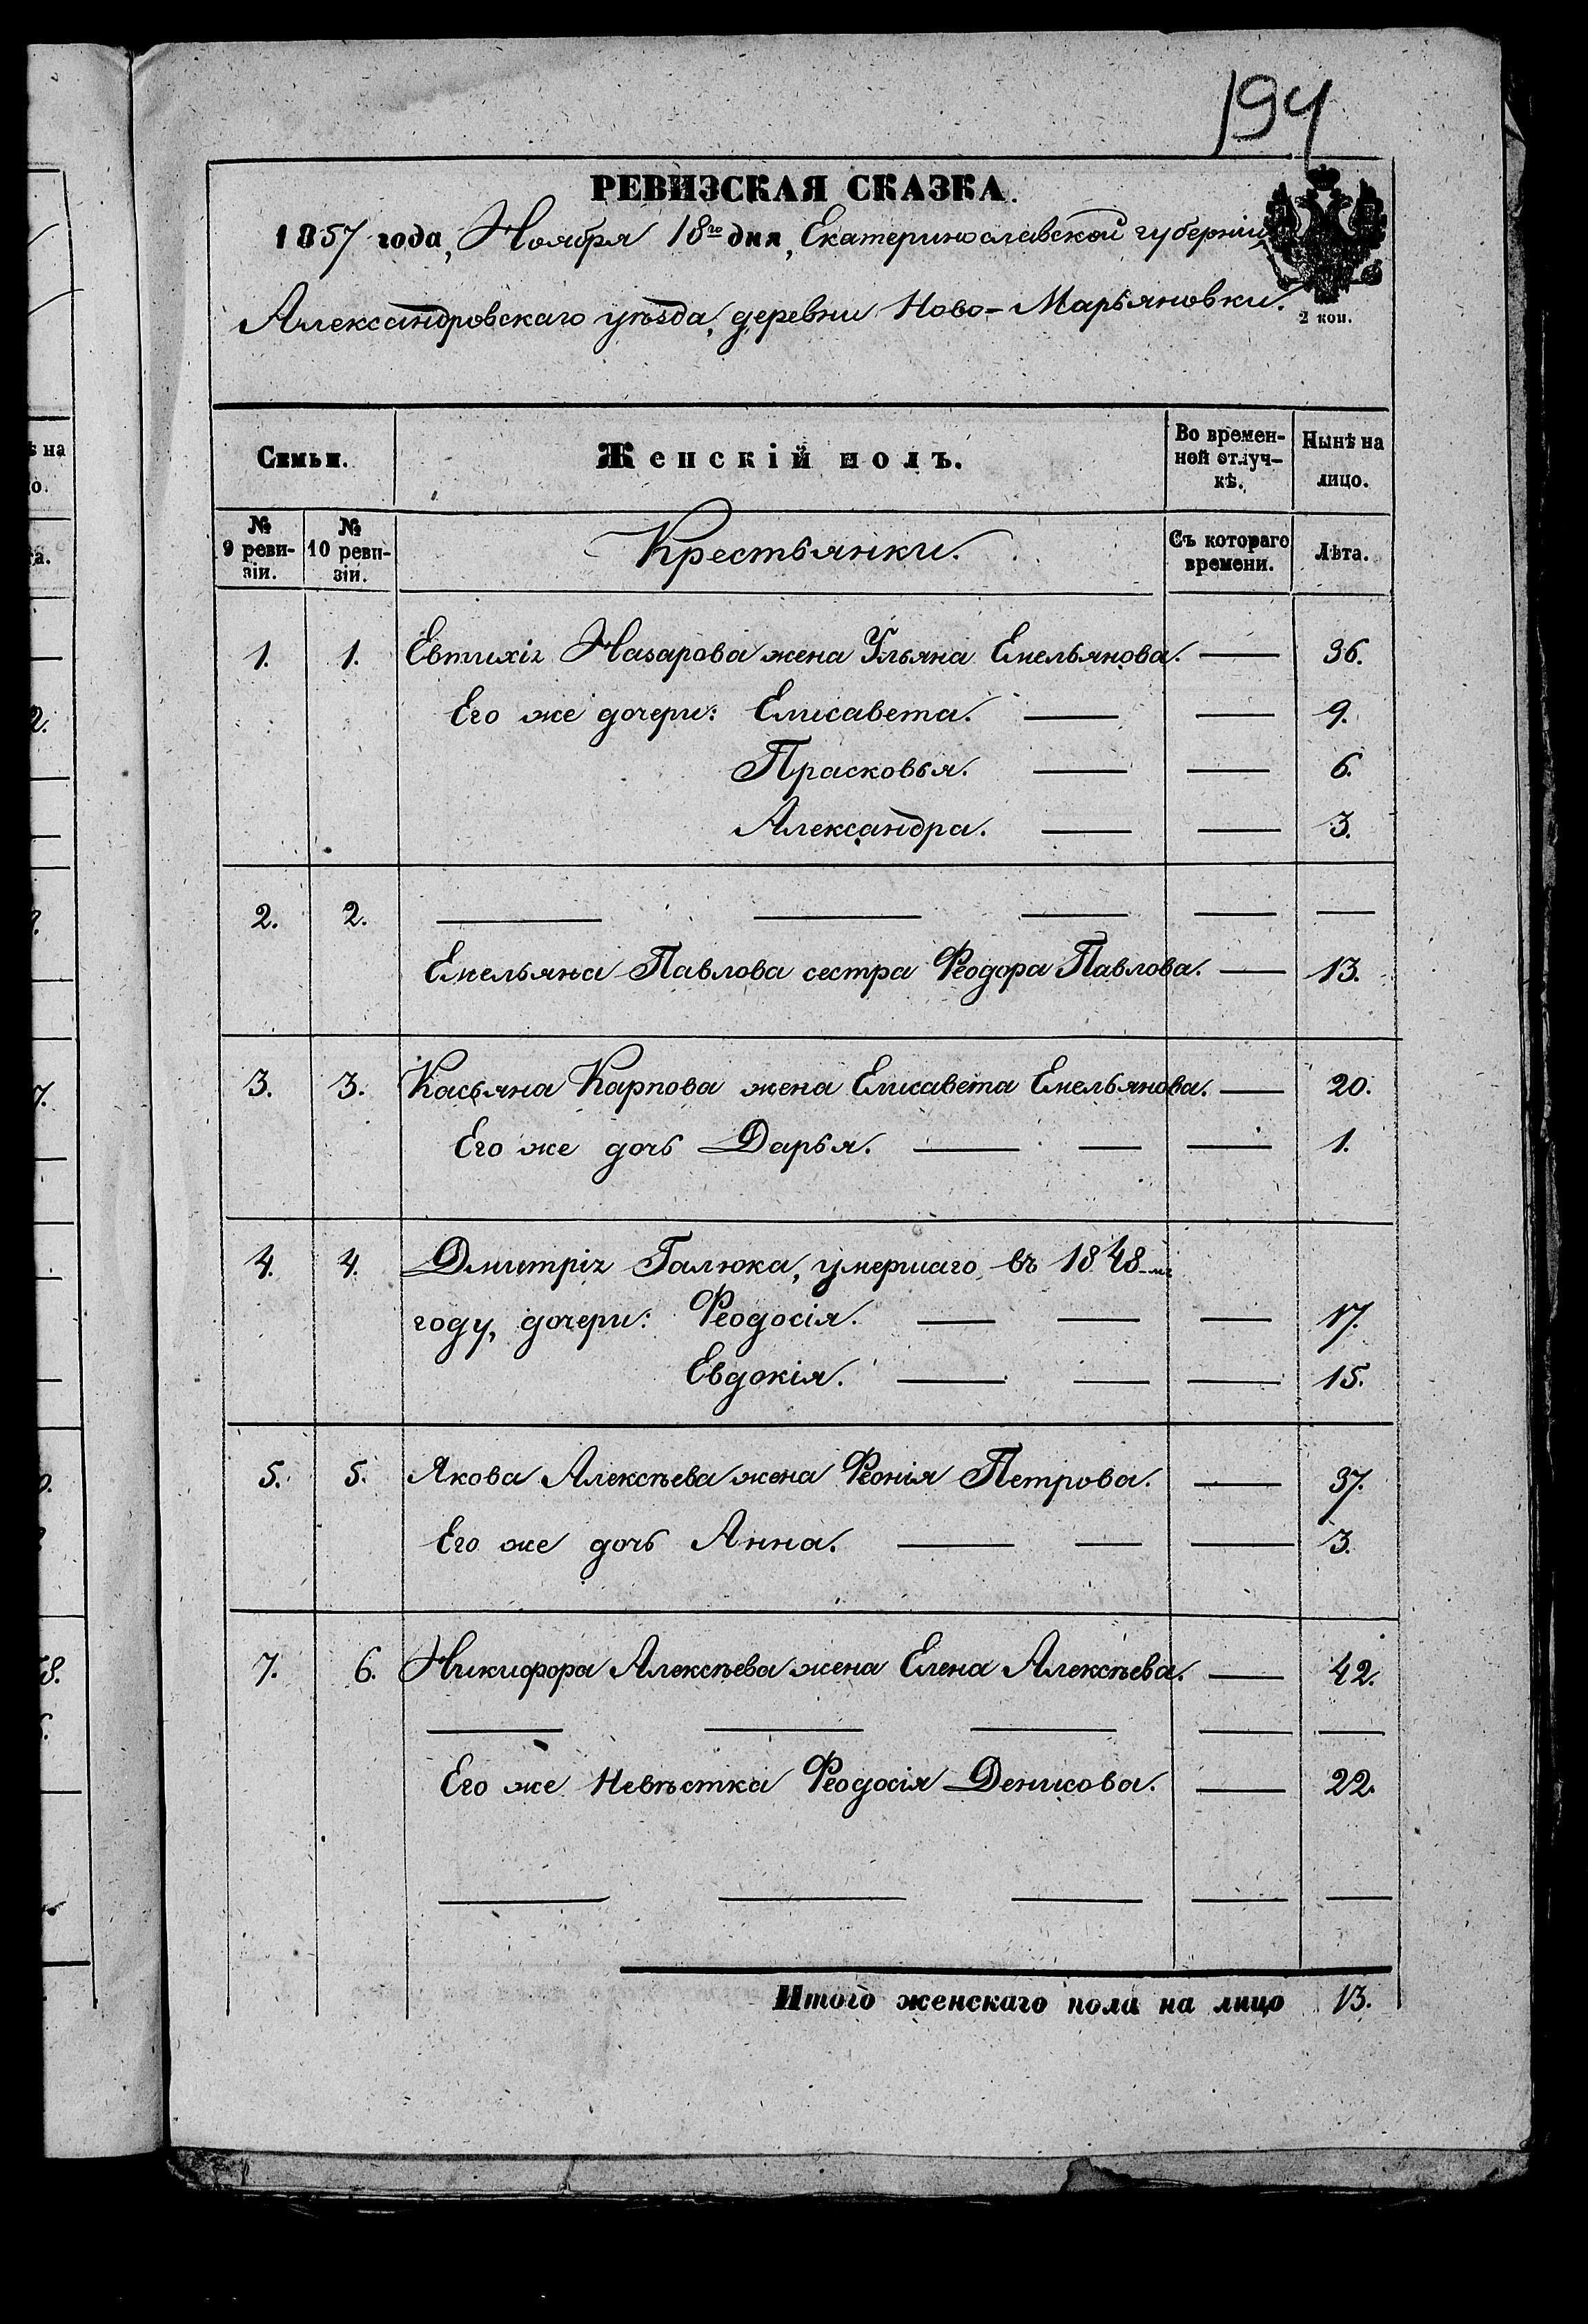 194
РЕВИЗСКАЯ СКАЗКА.
1857 года, Ноября 18го дня, Екатеринославской губерніи
Александровскаго уѣзда, деревни Ново-Марьяновки.
2 коп.
Семьи.
Женскій полъ.
Во времен-
ной отлуч-
кѣ.
Нынѣ на
лицо.
№
9 реви-
зіи.
№
10 реви-
зіи.
Крестьянки.
Съ котораго
времени.
Лѣта.
1. 1. Евтихія Назарова жена Ульяна Емельянова. — 36.
Его же дочери: Елисавета. — — 9.
Прасковья. — — 6.
Александра. — — 3.
2. 2. — — — — —
Емельяна Павлова сестра Ѳеодора Павлова. — 13.
3. 3. Касьяна Карпова жена Елисавета Емельянова. — 20.
Его же дочь Дарья. — — — 1.
4. 4. Дмитрія Галюка, умершаго въ 1848-мъ
году, дочери: Ѳеодосія. — — — 17.
Евдокія. — — — 15.
5. 5. Якова Алексѣева жена Ѳеонія Петрова. — 37.
Его же дочь Анна. — — — 3.
7. 6. Никифора Алексѣева жена Елена Алексѣева. — 42.
— — — — —
Его же Невѣстка Ѳеодосія Денисова. — 22.
— — — — —
Итого женскаго пола на лицо 13.